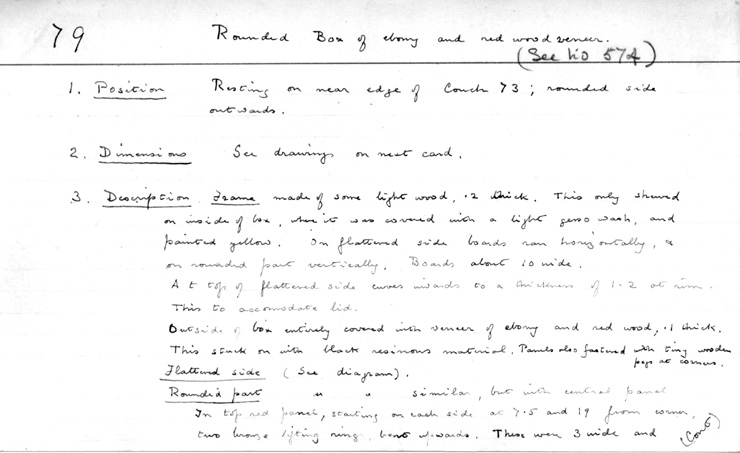 79 Rounded Box of ebony and red wood veneer.
(See lid 574)
1. Position Resting on near edge of Couch 73; rounded side
outwards.
2. Dimensions See drawings on next card.
3. Description Frame made of some light wood, .2 thick. This only showed
on inside of box, where it was covered with a light gesso wash, and
painted yellow. On flattened side boards ran horizontally, &
on rounded part vertically. Boards about 10 wide.
At top of flattened side curves inwards to a thickness of 1.2 at rim.
This to accomodate lid.
Outside of box entirely covered with veneer of ebony and red wood, .1 thick.
This stuck on with black resinous material. Panels also fastened with tiny wooden
pegs at corners.
Flattened side (See diagram).
Rounded part " " similar, but with central panel
In top red panel, starting on each side at 7.5 and 19 from corner,
two bronze lifting rings, bent upwards. These were 3 wide and
(Cont)